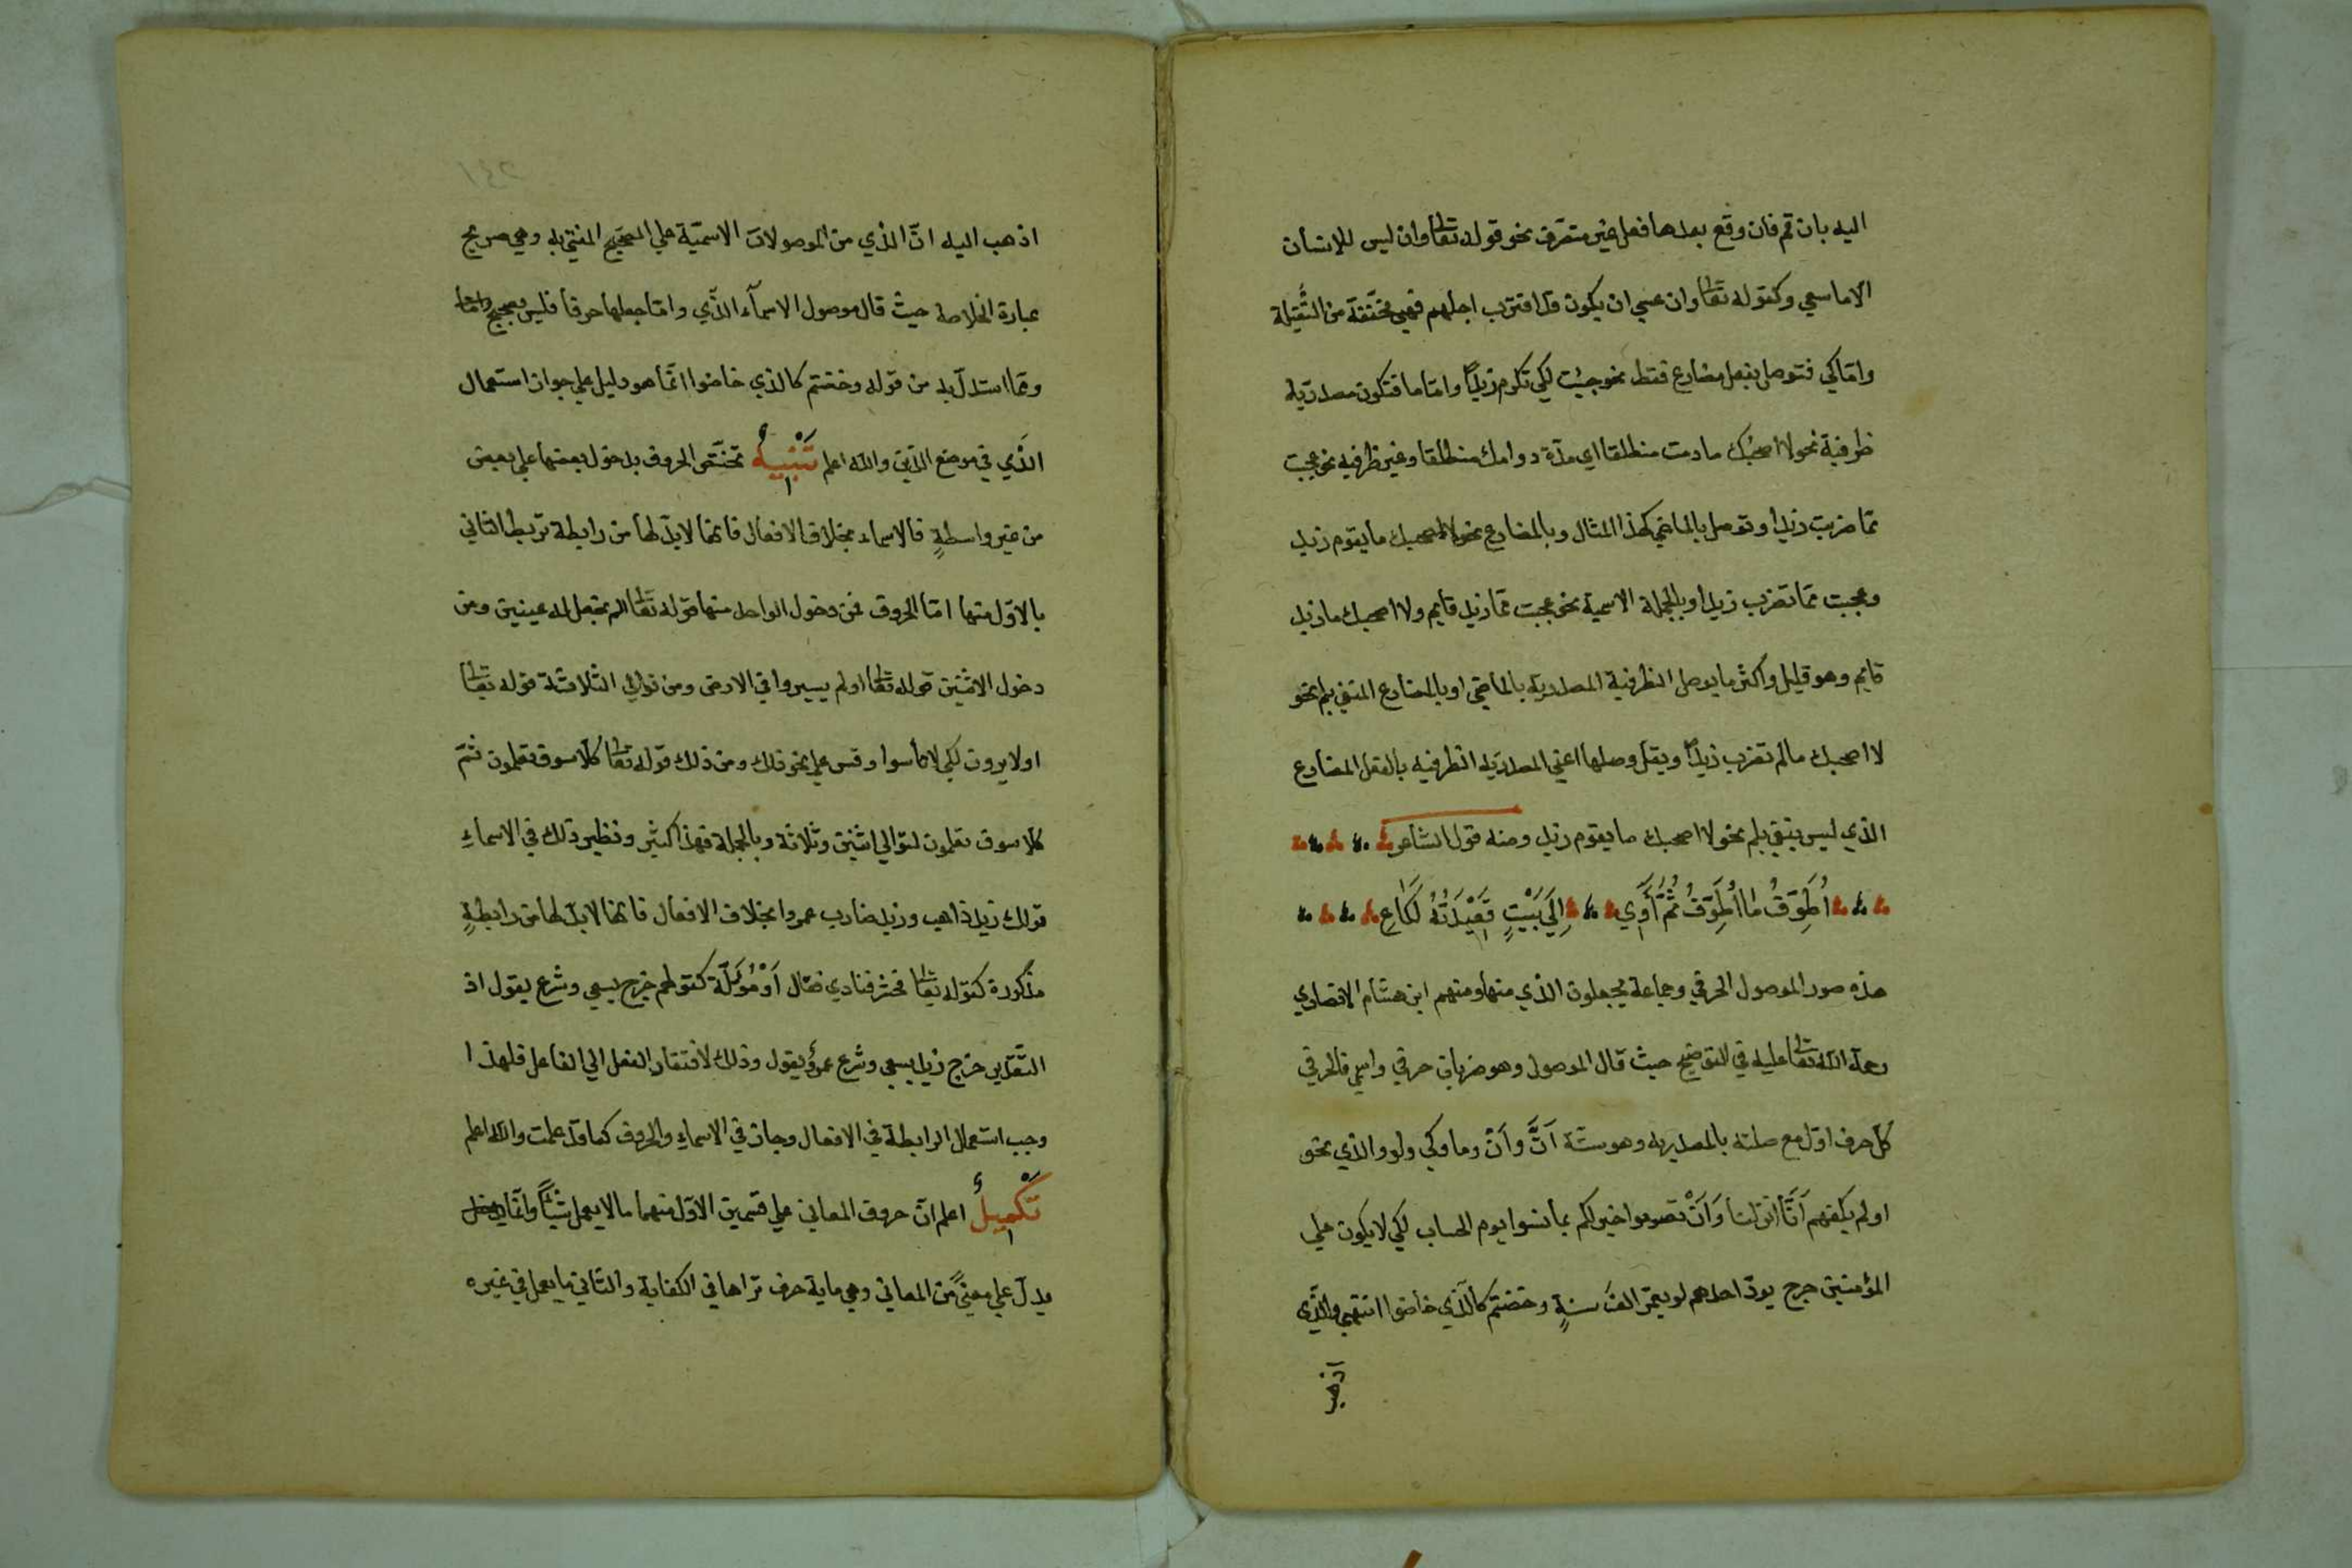 اليه بان قم فان وقع بعدها فعل غير متصرف نحو قوله تعالى وان ليس للانسان
الا ما سعى وكقوله تعالى وان عسى ان يكون قد اقترب اجلهم فهي مخففة من الثقيلة
واما كي فتوصل بفعل مضارع فقط نحو جيت لكي تكرم زيدًا واما ما فتكون مصدريه
ظرفية نحو لا اصحبك ما دمت منطلقا اي مدة دوامك منطلقا وغير ظرفيه نحو عجبت
مما ضربت زيدا وتوصل بالماضي كهذا المثال وبالمضارع نحو لا اصحبك ما يقوم زيد
وعجبت مما تضرب زيدا وبالجملة الاسمية نحو عجبت مما زيد قايم ولا اصحبك ما زيد
قايم وهو قليل واكثر ما يوصل الظرفية المصدريه بالماضي او بالمضارع المنفي بلم نحو
لا اصحبك ما لم تضرب زيدًا ويقل وصلها اعني المصدريه الظرفيه بالفعل المضارع
الذي ليس بنفي بلم نحو لا اصحبك ما يقوم زيد ومنه قول الشاعر
أُطَوِّفُ ما أُطَوِّفُ ثُمَّ أَوِي إِلَى بَيْتٍ قَعِيْدَتُهُ لَكَاعِ
هذه صور الموصول الحرفي وجماعة يجعلون الذي منها ومنهم ابن هشام الانصاري
رحمة الله تعالى عليه في التوضيح حيث قال الموصول وهو ضربان حرفي واسمي فالحرفي
كل حرف اول مع صلته بالمصدريه وهو ستة أنَّ وأنْ وما وكي ولو والذي نحو
اولم يكفهم أَنَّا انزلنا وَأَنْ تصوموا خير لكم بما نسوا يوم الحساب لكي لا يكون على
المؤمنين حرج يودّ احدهم لو يعمّر الف سنةٍ وخضتم كالذي خاضوا انتهى والذي
اذهب
٢٤١
اذهب اليه انّ الذي من الموصولات الاسميّة على الصحيح المفتى به وهي صريح
عبارة الخلاصة حيث قال موصول الاسمآء الذي واما جعلها حرفا فليس بصحيح
ومما استدلّ به من قوله وخضتم كالذي خاضوا انّما هو دليل على جواز استعمال
الذي في موضع الذين والله اعلم تَنْبِيهٌ تختصّ الحروف بدخول بعضها على بعض
من غير واسطةٍ فالاسماء بخلاف الافعال فانها لابدّ لها من رابطة تربط الثاني
بالاوّل منها امّا الحروف فمن دخول الواحد منها قوله تعالى الم نجعل له عينين ومن
دخول الاثنين قوله تعالى اولم يسيروا في الارض ومن توالي الثلاثة قوله تعالى
اولا يرون لكي لا تأسوا وقس على نحو ذلك ومن ذلك قوله تعالى كلا سوف تعلمون ثمّ
كلا سوف تعلمون لتوالي اثنين وثلاثة وبالجملة فهذا كثير ونظير ذلك في الاسماءِ
قولك زيد ذاهب وزيد ضارب عمروا بخلاف الافعال فانها لابدّ لها من رابطةٍ
مذكورة كقوله تعالى فحشر فنادى فقال أَوْ مُؤَوَّلَة كقولهم خرج يسعى وشرع يقول اذ
التّقدير خرج زيد يسعى وشرع عمرو يقول وذلك لافتقار الفعل الى الفاعل فلهذا
وجب استعمال الرابطة في الافعال وجاز في الاسماءِ والحروف كما قد علمت والله اعلم
تَكْمِيلٌ اعلم انّ حروف المعاني على قسمين الاوّل منهما ما لا يعمل شيئًا وانّما
يدلّ على معنىً من المعاني وهي ماية حرف تراها في الكفاية والثاني ما يعمل في غيره